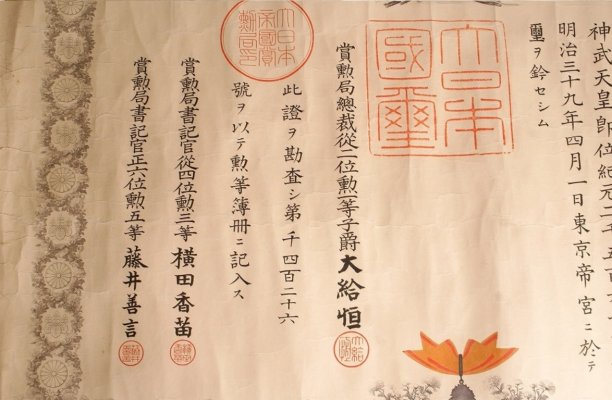 神武天皇即位紀元二千五百
明治三十九年四月一日東京帝宮ニ於テ
璽ヲ鈐セシム
大日本國璽
賞勲局總裁從二位勲一等子爵大給恒
此證ヲ勘査シ第千四百二十六
號ヲ以テ勲等簿册ニ記入ス
大日本帝國賞勲局印
賞勲局書記官從四位勲三等橫田香苗
賞勲局書記官正六位勲五等藤井善言